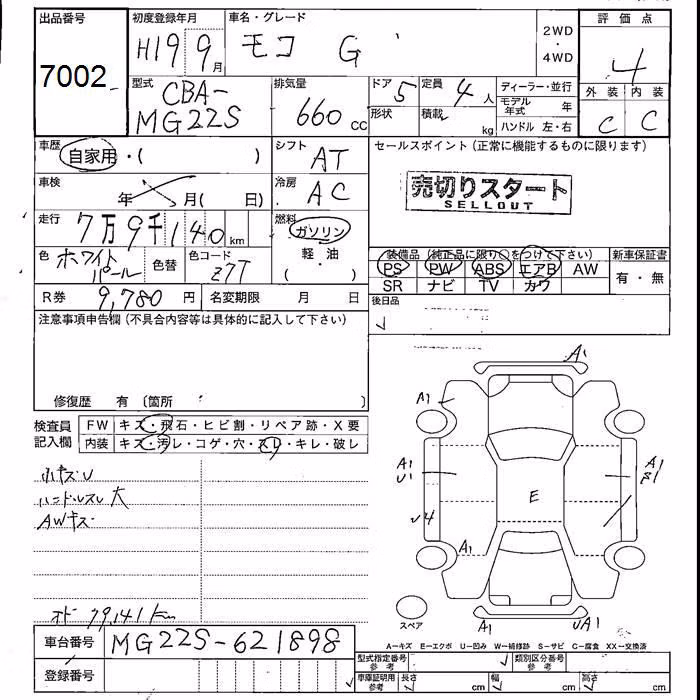 出品番号 初度登録年月 車名・グレード 評価点
7002 H19 9月 モコ G 2WD・4WD 4
型式 排気量 ドア 定員 ディーラー・並行 外装 内装
CBA-MG22S 660cc 5 4人 モデル年式 年 C C
形状 積載 kg ハンドル 左・右
車歴 シフト セールスポイント(正常に機能するものに限ります)
自家用・( ) AT
売切りスタート
SELLOUT
車検 年 月( 日) 冷房 AC
走行 7万9千140km 燃料 ガソリン・軽油
装備品(純正品に限り○をつけて下さい) 新車保証書
色 ホワイトパール 色替 色コード Z7T
PS PW ABS エアB AW 有・無
SR ナビ TV カワ
R券 9,780円 名変期限 月 日 後日品
注意事項申告欄(不具合内容等は具体的に記入して下さい)
修復歴 有〔箇所
検査員記入欄 FW キズ・飛石・ヒビ割・リペア跡・X要
内装 キズ・汚レ・コゲ・穴・スレ・キレ・破レ
小キズU
ハンドルスレ大
AWキズ
オド 79,141km
A1
A1
A1 U1
A1
E
U4
A1
スペア
A1 UA1
A−キズ E−エクボ U−凹み W−補修跡 S−サビ C−腐食 XX−交換済
車台番号 MG22S-621898
登録番号
型式指定番号 参考 類別区分番号 参考
車庫証明用 参考 長さ cm 幅 cm 高さ cm